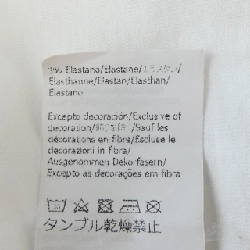 Elastano/Elastane/エラスタン/
Elasthanne/Elastan/Elasthan/
Elastano
Excepto decoración/Exclusive of
decoration/Sauf les
décorations en fibra/Escluse le
decorazioni in fibra/
Ausgenommen Dekorfasern/
Excepto as decorações em fibra
タンブル乾燥禁止